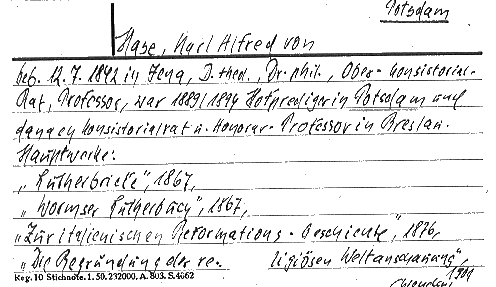 Potsdam
Hase, Karl Alfred von
geb. 12.7.1842 in Jena, D. theol., Dr. phil., Ober-Konsistorial-
Rat, Professor, war 1889/1894 Hofprediger in Potsdam und
danach Konsistorialrat u. Honorar-Professor in Breslau.
Hauptwerke:
„Lutherbriefe", 1867,
„Wormser Lutherbuch", 1867,
„Zur italienischen Reformations-Geschichte," 1876,
„Die Begründung der re- ligiösen Weltanschauung",
1901
Reg. 10 Stichnote. 1. 50. 232000, A. 803. S. 4662